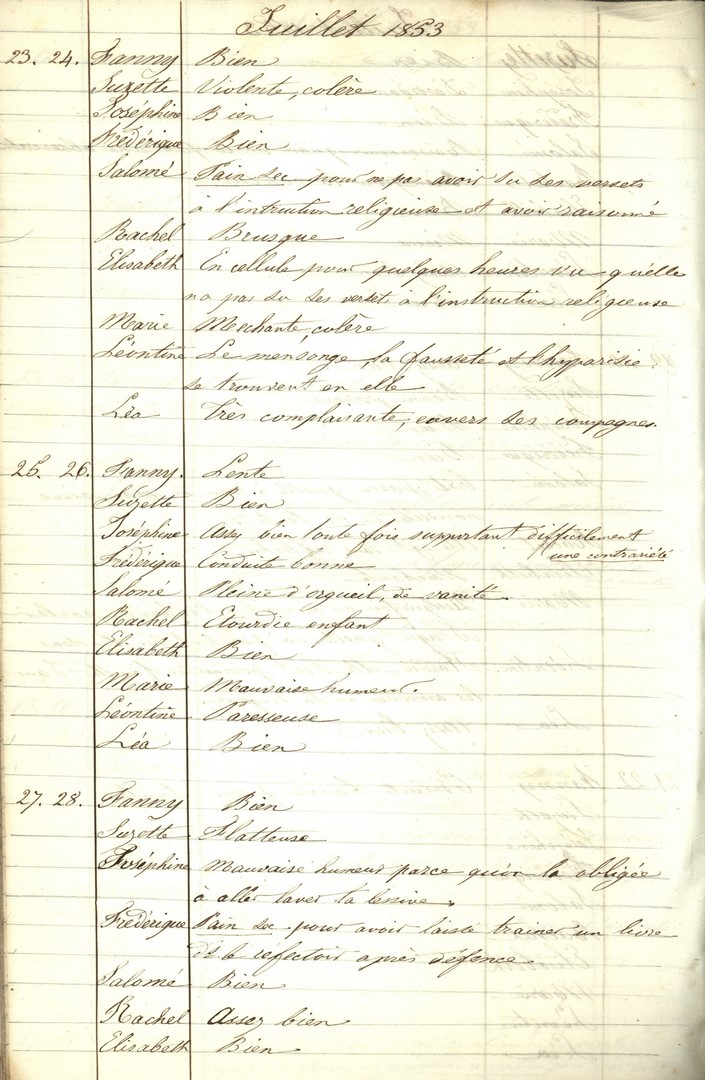 Juillet 1853
23. 24. Fanny Bien
Suzette Violente, colère
Joséphine Bien
Frédérique Bien
Salomé Pain sec pour ne pas avoir su ses versets
à l'intruction religieuse et avoir raisonné
Rachel Brusque
Elisabeth En cellule pour quelques heures vu qu'elle
n'a pas su ses verset à l'instruction religieuse
Marie Mechante colère
Léontine Le mensonge, la fausseté et l'hyporisie
se trouvent en elle
Léa Très complaisante, envers ses compagnes.
25. 26. Fanny. Lente
Suzette Bien
Joséphine Assez bien toute fois supportant difficilement
une contrariété
Frédérique Conduite bonne
Salomé Pleine d'orgueil, de vanité.
Rachel Etourdie enfant
Elisabeth Bien
Marie Mauvaise humeur.
Léontine Paresseuse
Léa Bien
27. 28. Fanny Bien
Suzette Flatteuse
Joséphine Mauvaise humeur parce qu'on la obligée
à aller laver la lessive.
Frédérique Pain sec pour avoir laissé trainer un livre
à la réfectoir après défence
Salomé Bien
Rachel Assez bien
Elisabeth Bien